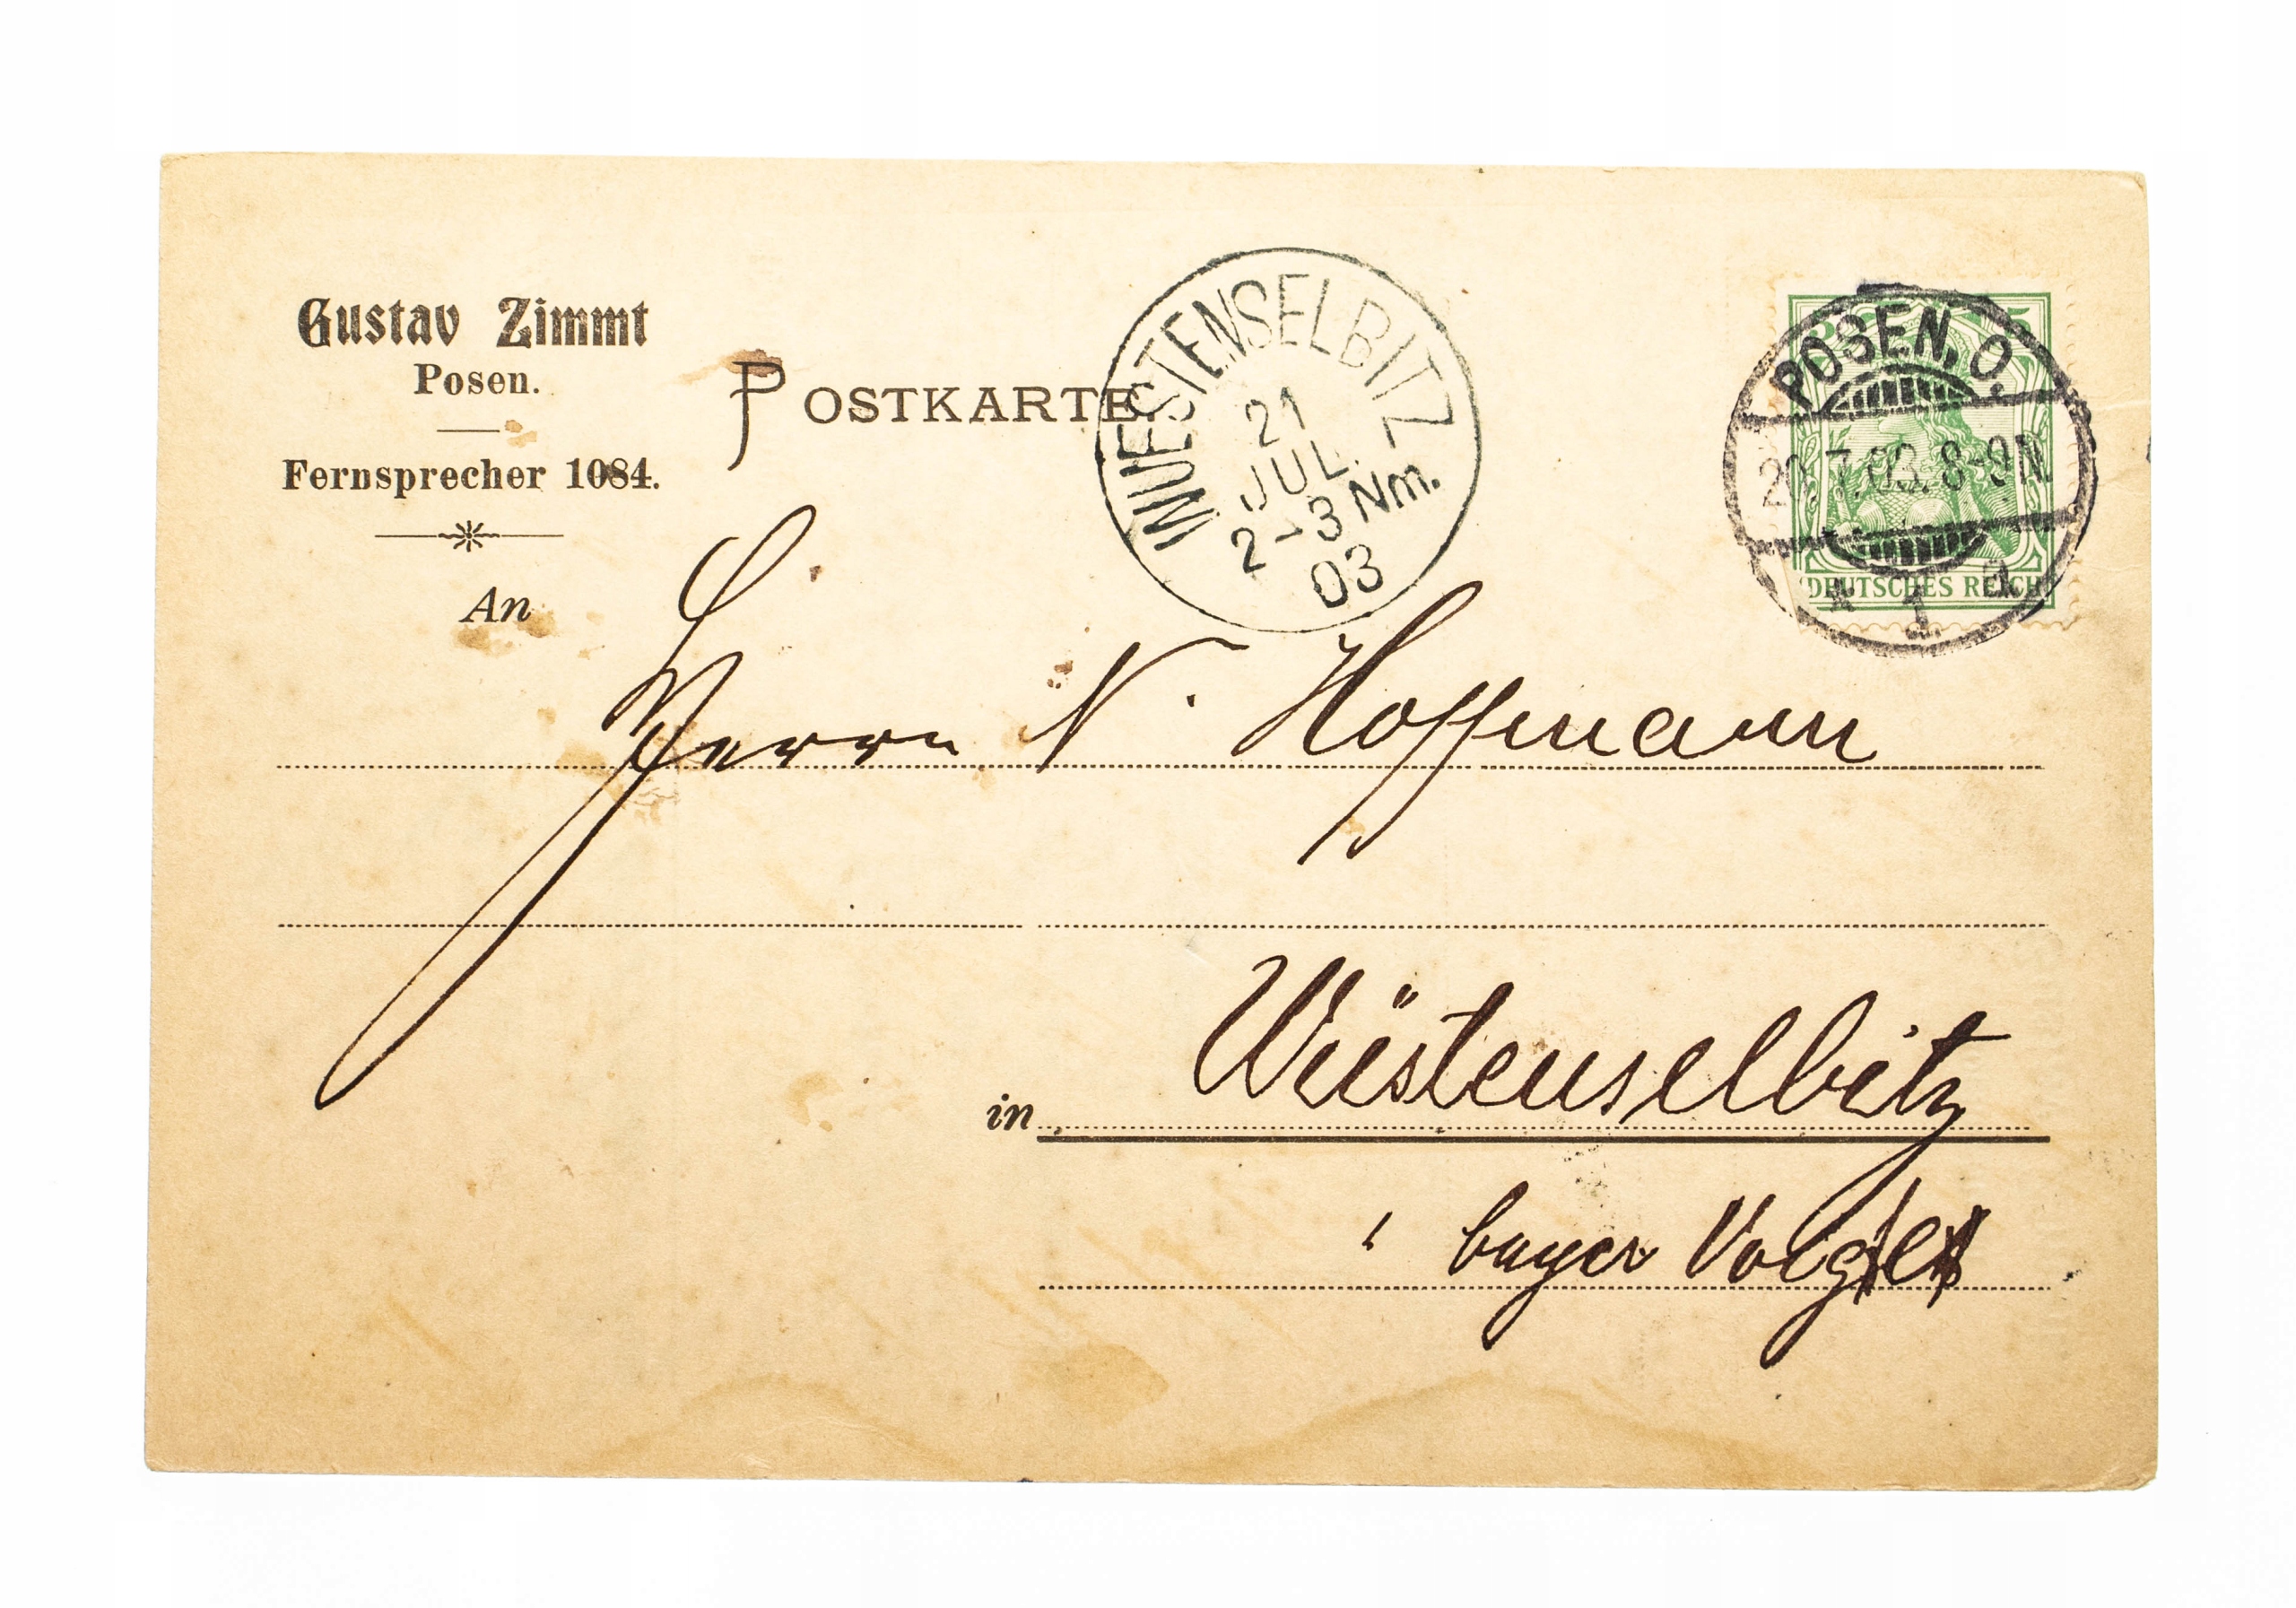 Gustav Zimmt
Posen.
Fernsprecher 1084.
POSTKARTE
WUESTENSELBITZ
21
JUL.
2-3 Nm.
03
5
POSEN. O.
20.7.03. 8-9N
* 1 a
DEUTSCHES REICH
An
Herrn N. Hoffmann
in Wüstenselbitz
bayer